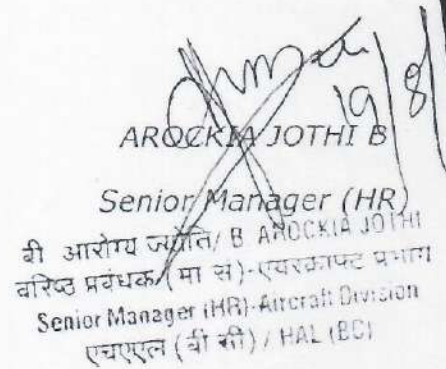 19/8/
AROCKIA JOTHI B
Senior Manager (HR)
बी आरोग्य ज्योति/ B AROCKIA JOTHI
वरिष्ठ प्रबंधक (मा सं)-एयरक्राफ्ट प्रभाग
Senior Manager (HR)-Aircraft Division
एचएएल (बी सी) / HAL (BC)